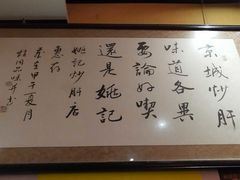 京城炒肝
味道各異
要論好喫
還是姚記
姚記炒肝店
惠存
歲在甲午夏月